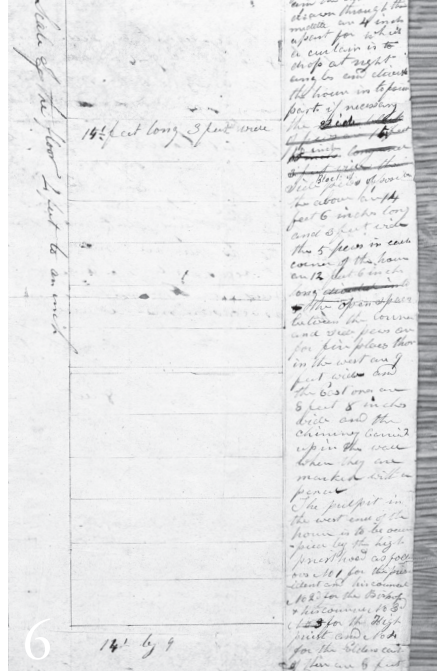 Scale of the floor 4 feet to an inch
14½ feet long 3 feet wide
14½ by 9
6
drawn through the
middle are 4 inch
apart for which
a curtain is to
drop at right
angles and
the house into
parts if necessary
the side
feet
inches
3 feet wide the
Side pews
the above are 14
feet 6 inches long
and 3 feet wide
the 5 pews in each
corner of the house
are 12 feet 6 inches
long
the open spaces
between the corner
and side pews are
for fire places those
in the west are 9
feet wide and
the East ones are
8 feet 8 inches
wide and the
chimney carried
up in the wall
where they are
marked with a
pencil
The pulpit in
the west end of the
house is to be occu
pied by the high
priesthood as foll
ows No 1 for the pres
ident and his council
No 2 for the Bishop
& his council No 3
for the High
priest and No 4
for the Elders each
of these are 8 feet